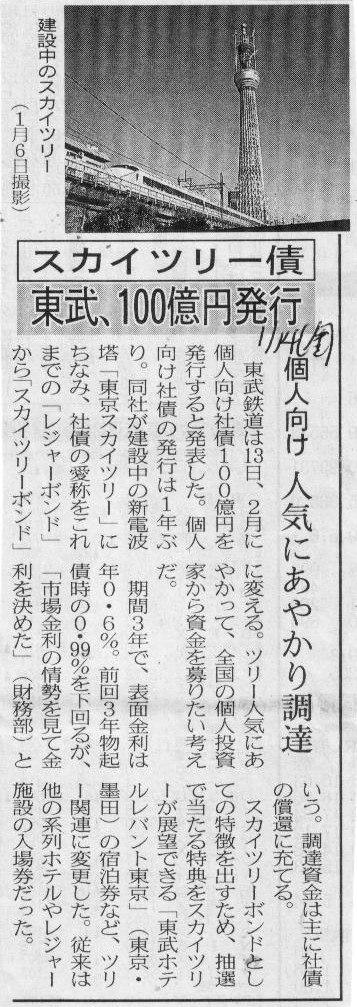 建設中のスカイツリー
(1月6日撮影)
スカイツリー債
東武、100億円発行
1/14(金)
個人向け 人気にあやかり調達
東武鉄道は13日、2月に
個人向け社債100億円を
発行すると発表した。個人
向け社債の発行は1年ぶ
り。同社が建設中の新電波
塔「東京スカイツリー」に
ちなみ、社債の愛称をこれ
までの「レジャーボンド」
から「スカイツリーボンド」
に変える。ツリー人気にあ
やかって、全国の個人投資
家から資金を募りたい考え
だ。
期間3年で、表面金利は
年0・6%。前回3年物起
債時の0・99%を下回るが、
「市場金利の情勢を見て金
利を決めた」(財務部)と
いう。調達資金は主に社債
の償還に充てる。
スカイツリーボンドとし
ての特徴を出すため、抽選
で当たる特典をスカイツリ
ーが展望できる「東武ホテ
ルレバント東京」(東京・
墨田)の宿泊券など、ツリ
ー関連に変更した。従来は
他の系列ホテルやレジャー
施設の入場券だった。